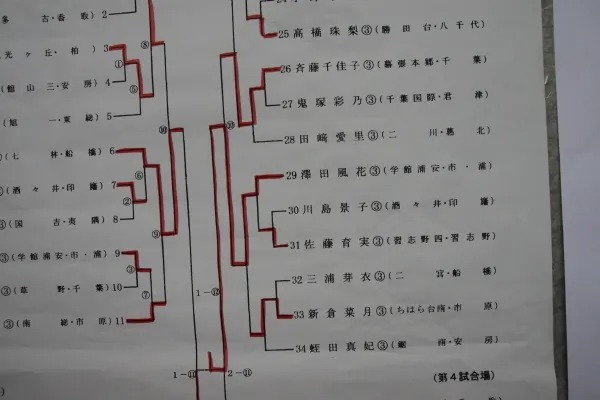 多 古・香取) 2
光ヶ丘・柏) 3
(館 山 三・安 房) 4
(旭 一・東 総) 5
(七 林・船 橋) 6
③(酒々井・印 旛) 7
③(国 吉・夷 隅) 8
③(学館浦安・市・浦) 9
③(草 野・千 葉) 10
③(南 総・市 原) 11
⑧
①
⑤
⑥
②
⑨
③
⑦
⑩
1－⑫
1－⑪
2－⑪
25 高 橋 珠 梨 ③ (勝 田 台・八 千 代)
26 斉 藤 千 佳 子 ③ (幕 張 本 郷・千 葉)
27 鬼 塚 彩 乃 ③ (千 葉 国 際・君 津)
28 田 﨑 愛 里 ③ (二 川・葛 北)
29 澤 田 風 花 ③ (学 館 浦 安・市・浦)
30 川 島 景 子 ③ (酒 々 井・印 旛)
31 佐 藤 育 実 ③ (習 志 野 四・習 志 野)
32 三 浦 芽 衣 ③ (二 宮・船 橋)
33 新 倉 菜 月 ③ (ちはら台南・市 原)
34 蛭 田 真 妃 ③ (鋸 南・安 房)
(第４試合場)